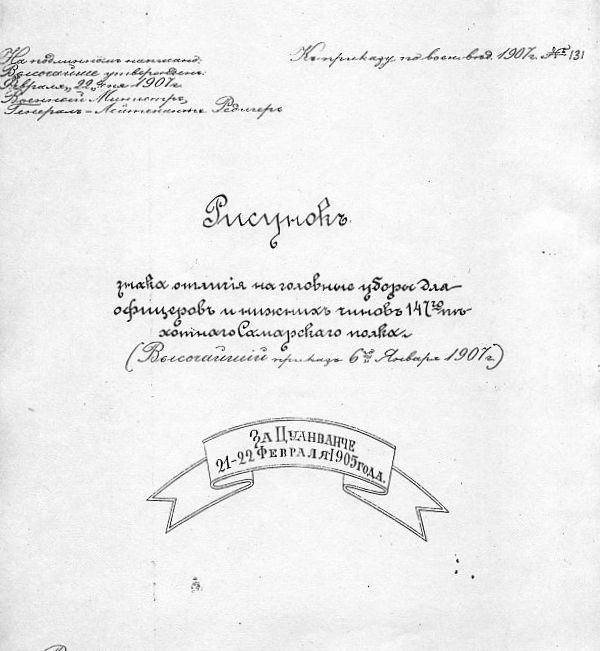 На подлинномъ написано:
Высочайше утвержденъ.
Февраля „22„ дня 1907г.
Военный Министръ,
Генералъ-Лейтенантъ Редигеръ
Къ приказу по воен. вѣд. 1907г. № 131
Рисунокъ
знака отличія на головные уборы для
офицеровъ и нижнихъ чиновъ 147го пѣ-
хотнаго Самарскаго полка.
(Высочайшій приказъ 6го Января 1907г.)
За Цуанванче
21-22 Февраля 1905 года.